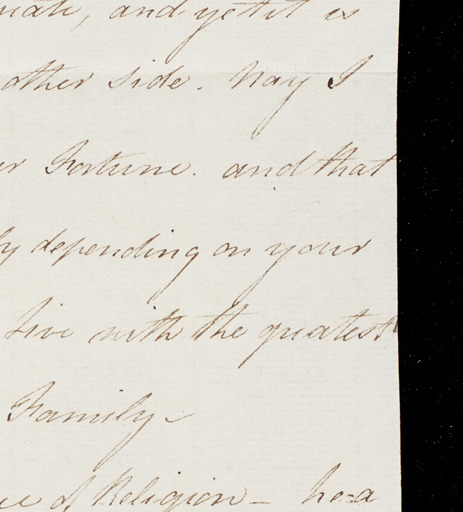 and yet it is
other side. Nay I
Fortune. and that
depending on your
live with the greatest
Family –
of Religion –